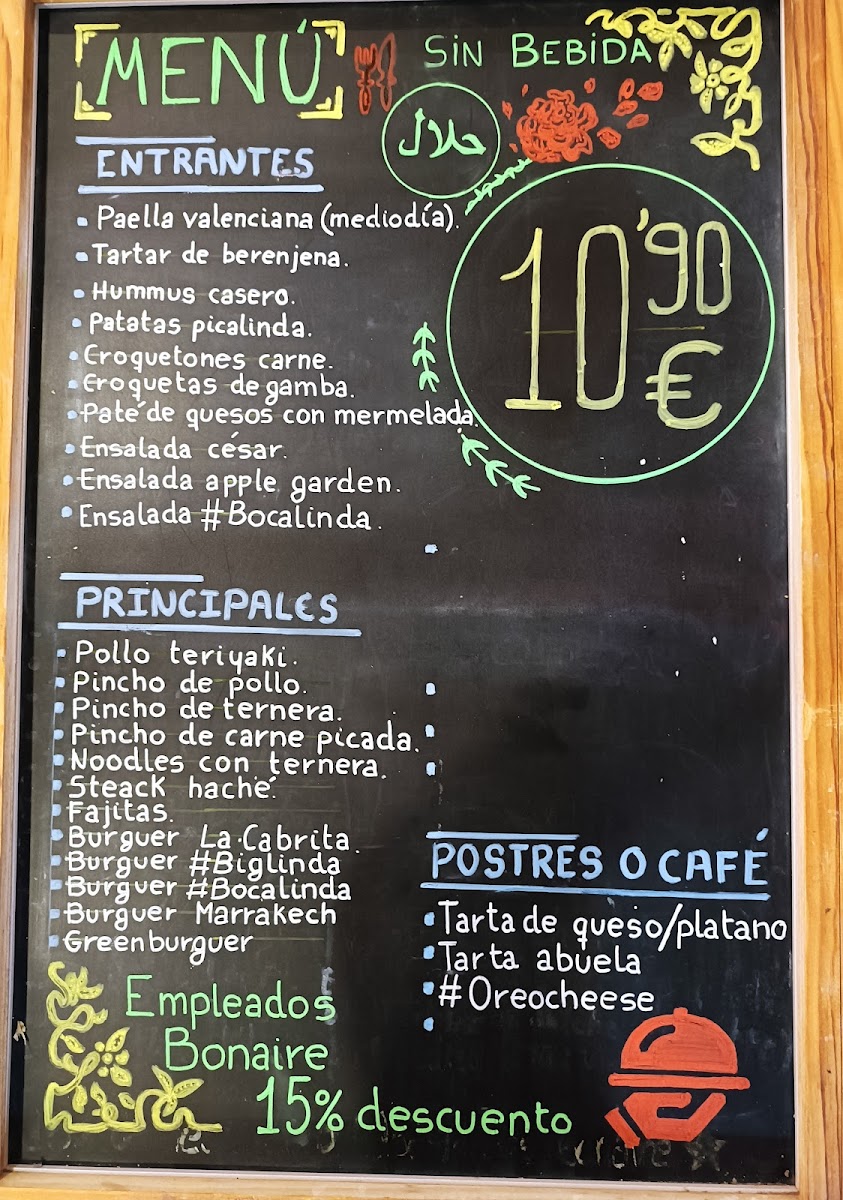 MENÚ
SIN BEBIDA
حلال
ENTRANTES
10'90
€
Paella valenciana (mediodía).
Tartar de berenjena.
Hummus casero.
Patatas picalinda.
Croquetones carne.
Croquetas de gamba.
Paté de quesos con mermelada.
Ensalada césar.
Ensalada apple garden.
Ensalada #Bocalinda.
PRINCIPALES
Pollo teriyaki.
Pincho de pollo.
Pincho de ternera.
Pincho de carne picada.
Noodles con ternera.
Steack haché.
Fajitas.
Burguer La Cabrita.
Burguer #Biglinda
Burguer #Bocalinda
Burguer Marrakech
Greenburguer
POSTRES O CAFÉ
Tarta de queso/platano
Tarta abuela
#Oreocheese
Empleados
Bonaire
15% descuento